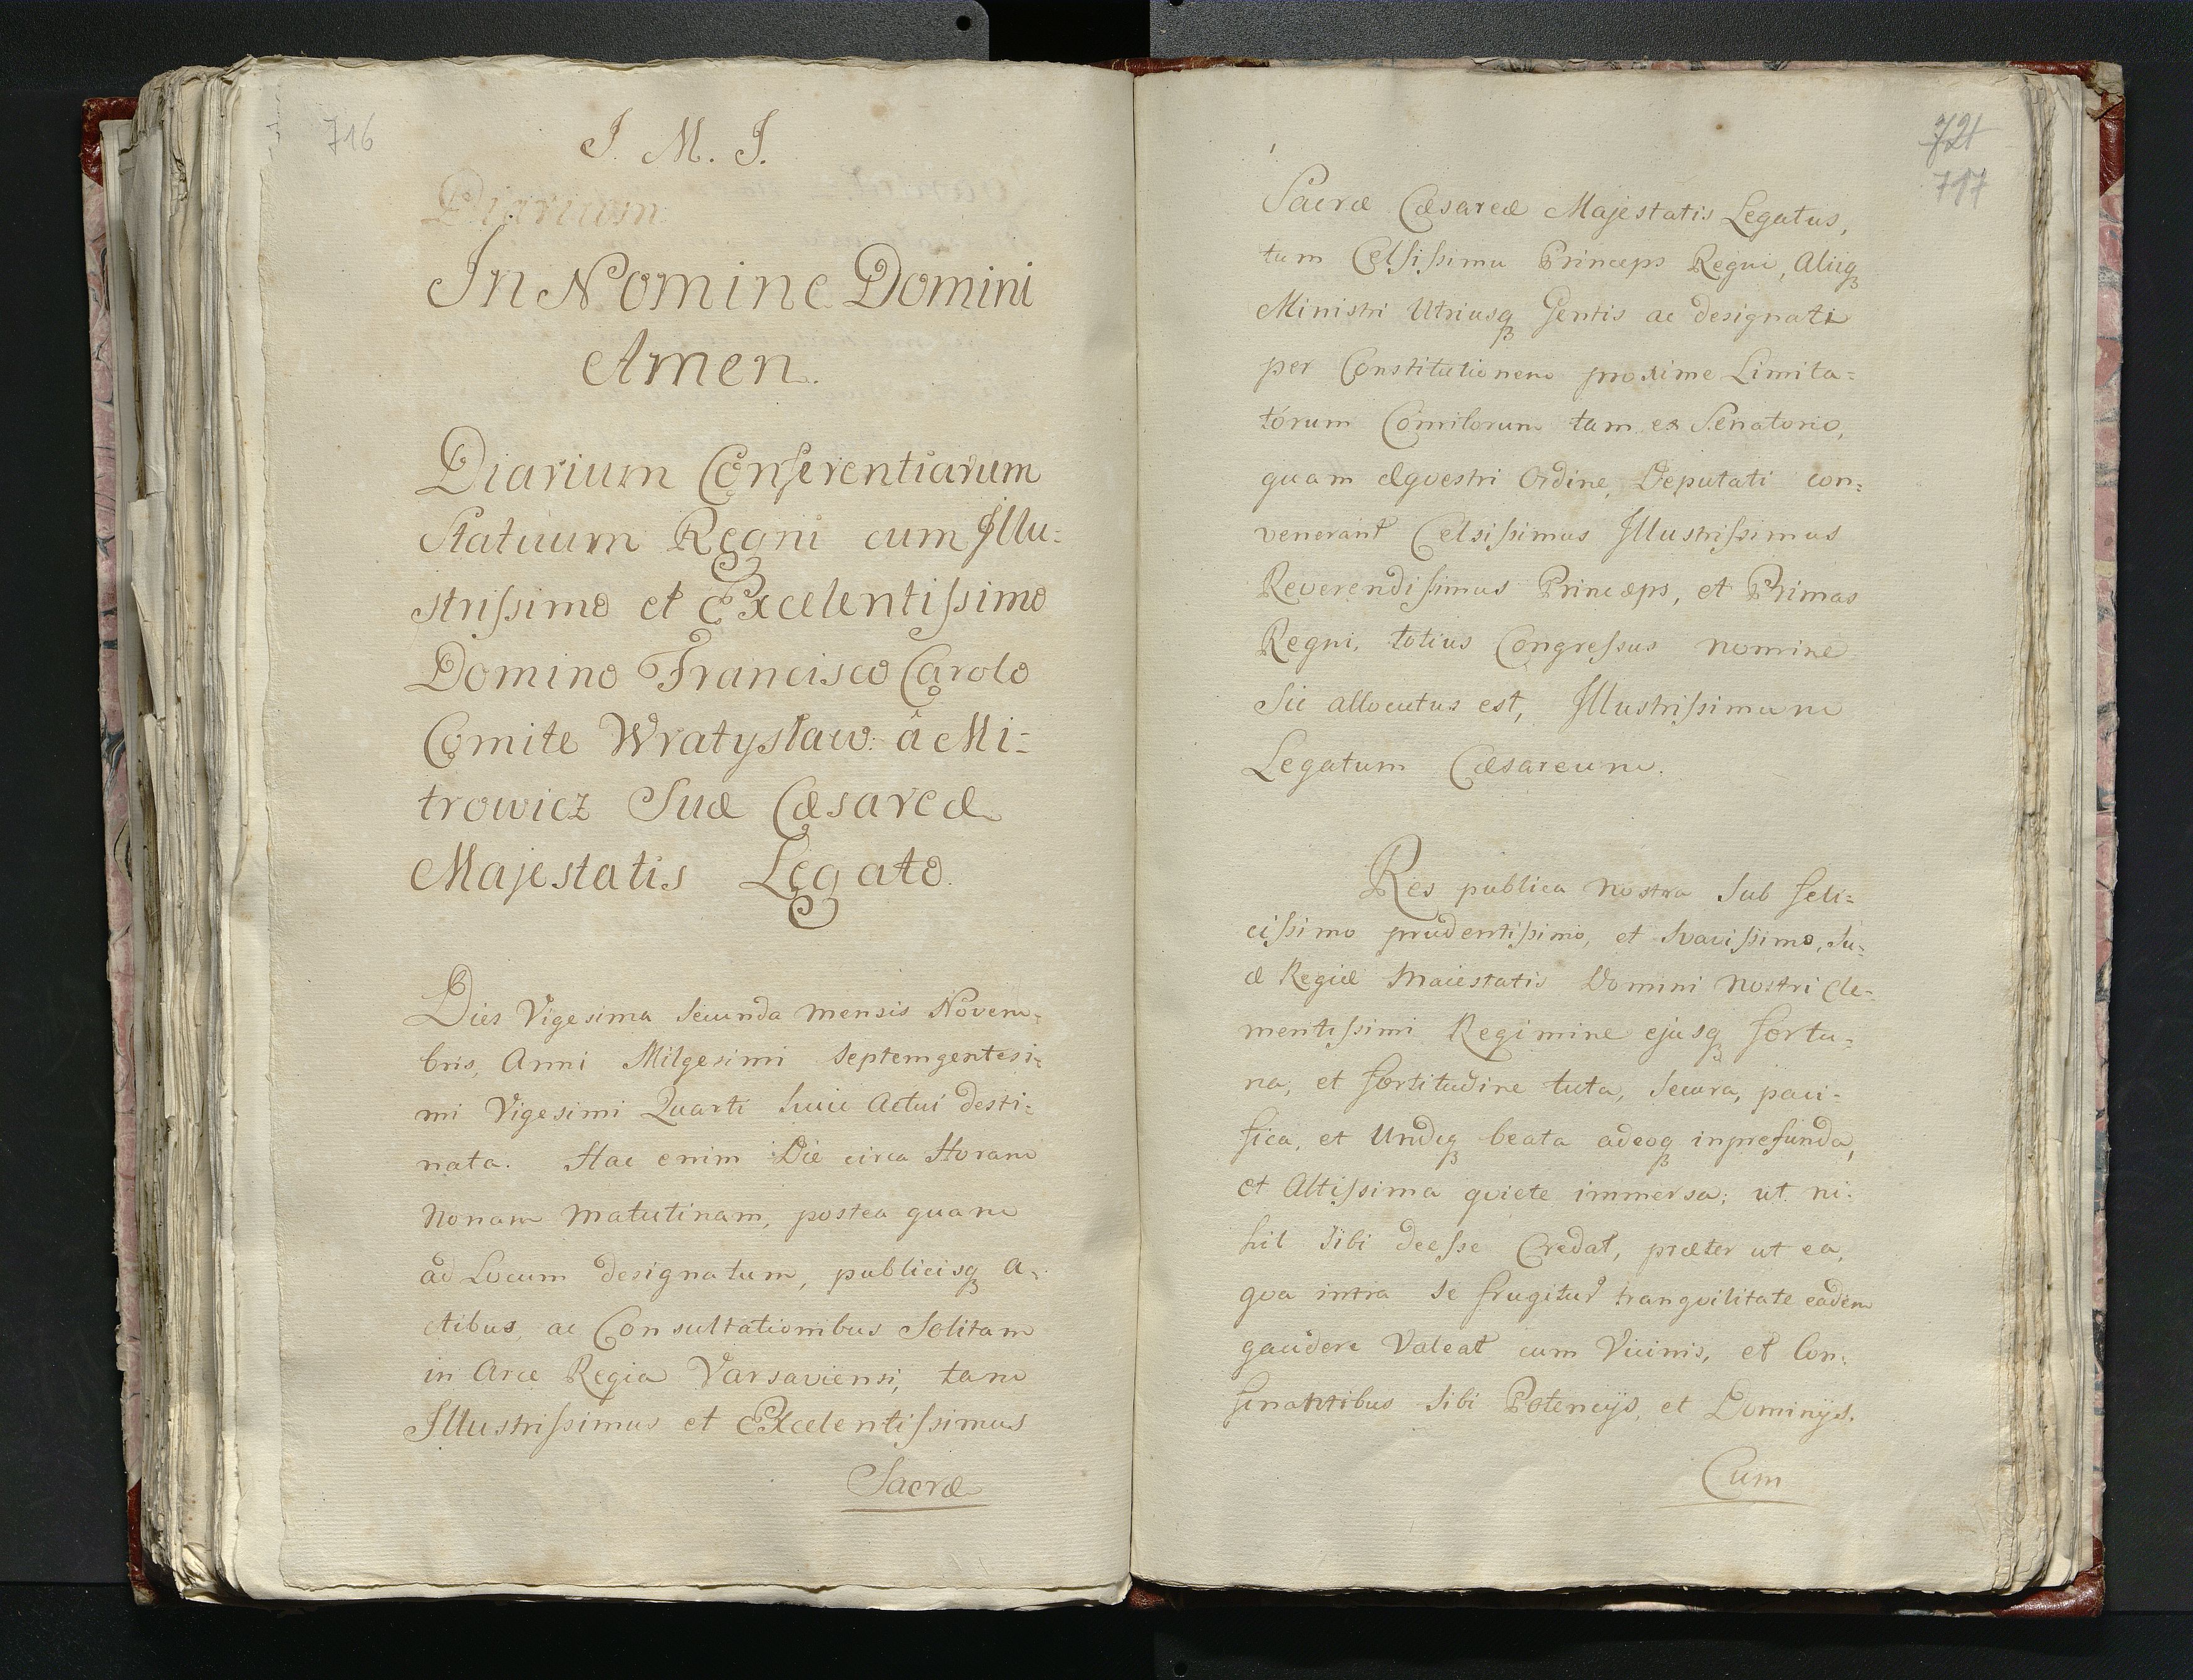 716
J. M. J.
Diarium
In Nomine Domini
Amen.
Diarium Conferentiarum
Statuum Regni cum Illu:
strißimo et Excelentißimo
Domino Francisco Carolo
Comite Wratysław â Mi:
trowicz Suæ Cæsareæ
Majestatis Legato.
Dies Vigesima Secunda Mensis Novem:
bris, Anni Milgesimi Septemgentesi:
mi Vigesimi Quarti huic Actui desti:
nata. Hac enim Die circa Horam
Nonam Matutinam, postea quam
ad Locum designatum, publicisq₃ A:
ctibus, ac Consultationibus Solitam
in Arce Regia Varsaviensi, tam
Illustrißimus et Excelentißimus
Sacræ
721
717
Sacræ Cæsareæ Majestatis Legatus,
tum Celsißimu Princeps Regni, Aliiq₃
Ministri Utriusq₃ Gentis ac designati
per Constitutionem proxime Limita:
tórum Comitiorum tam ex Senatorio,
quam æqvestri Ordine, Deputati con:
venerant Celsißimus Illustrißimus
Reverendißimus Princeps, et Primas
Regni, totius Congreßus nomine
Sic allocutus est, Illustrißimum
Legatum Cæsareum.
Res publica Nostra Sub feli:
cißimo prudentißimo, et Svavißimo, Su:
æ Regiæ Maiestatis Domini Nostri Cle:
mentißimi Regimine ejusq₃ fortu:
na, et fortitudine tuta, Secura, paci:
fica, et Undiq₃ beata adeoq₃ inprofunda,
et Altißima qviete immersa; ut ni:
hil Sibi deeße Credat, præter ut ea,
qva intra Se frugitur tranqvilitate eadem
gaudere Valeat cum Vicinis, et Con:
finantibus Sibi Potencijs, et Dominijs.
Cum